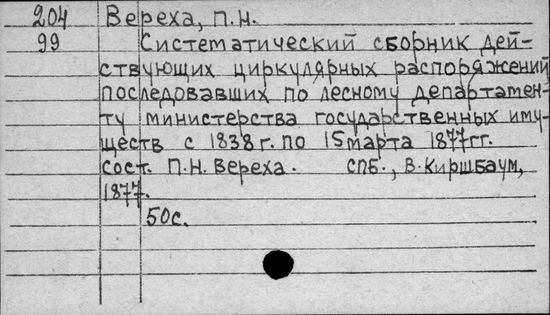 204 Вереха, П.Н.
99 Систематический сборник дей-
ствующих циркулярных распоряжений
последовавших по лесному департамен-
ту министерства государственных иму-
ществ с 1838 г. по 15 марта 1877 гг.
сост. П.Н. Вереха. СПБ., В. Киршбаум,
1877.
50с.